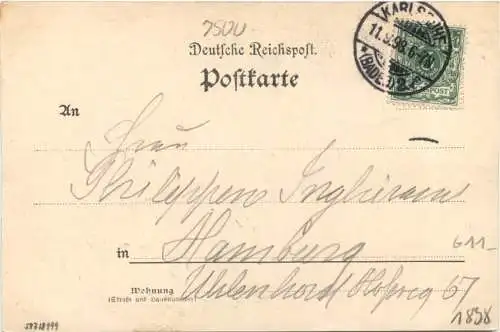 7500
Deutsche Reichspost.
Postkarte
KARLSRUHE
11.9.98.6-7N
*(BADEN)2*
An
Frau
Philippson Inglmann
in Hamburg
G11-
Wohnung
(Straße und Hausnummer)
Uhlenhorst Hofweg 67
1898